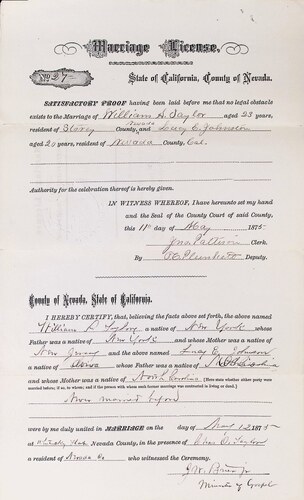 Marriage License.
No. 27
State of California, County of Nevada.
SATISFACTORY PROOF having been laid before me that no legal obstacle
exists to the Marriage of William S. Taylor aged 23 years,
resident of Storey Nevada County, and Lucy E. Johnson
aged 20 years, resident of Nevada County, Cal.
Authority for the celebration thereof is hereby given.
IN WITNESS WHEREOF, I have hereunto set my hand
and the Seal of the County Court of said County,
this 11th day of May 1875
Jno Pattison Clerk.
By Deputy.
County of Nevada, State of California.
I HEREBY CERTIFY, that, believing the facts above set forth, the above named
William S. Taylor a native of New York whose
Father was a native of New York and whose Mother was a native of
New Jersey and the above named Lucy E. Johnson
a native of Iowa whose Father was a native of
and whose Mother was a native of North Carolina
before, if so, to whom; and if the person with whom such former marriage was contracted is living or dead.)
Never married before
were by me duly united in MARRIAGE on the day of May 12 1875
at Nevada County, in the presence of Taylor
a resident of Nevada Co who witnessed the Ceremony.
J. W.
Minister of Gospel